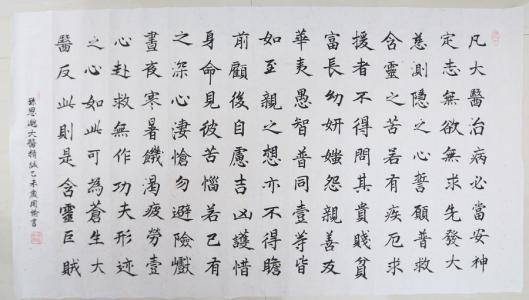 凡大醫治病必當安神
定志無欲無求先發大
慈惻隱之心誓願普救
含靈之苦若有疾厄求
援者不得問其貴賤貧
富長幼妍媸怨親善友
華夷愚智普同壹等皆
如至親之想亦不得瞻
前顧後自慮吉凶護惜
身命見彼苦惱若己有
之深心淒愴勿避險巇
晝夜寒暑饑渴疲勞壹
心赴救無作功夫形迹
之心如此可為蒼生大
醫反此則是含靈巨賊
孫思邈大醫精誠乙未歲周書